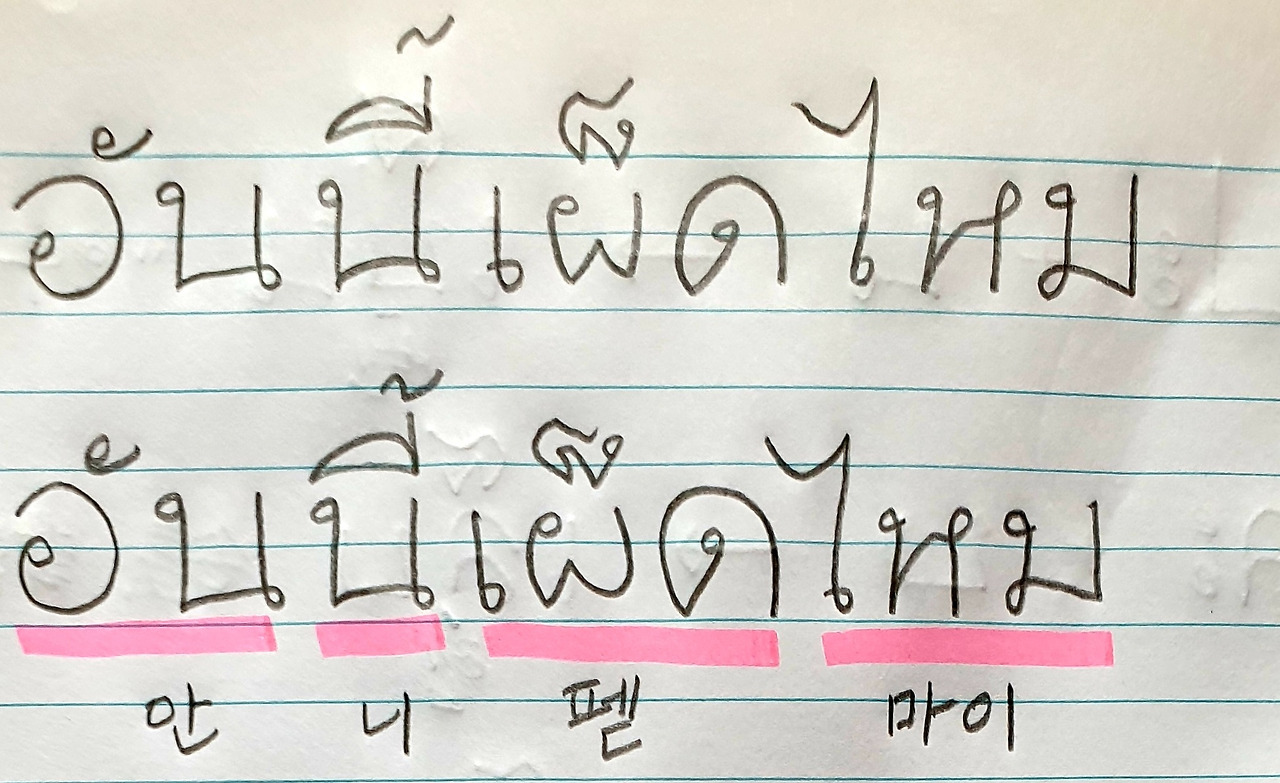 อันนี้เผ็ดไหม
อันนี้เผ็ดไหม
안 니 펟 마이